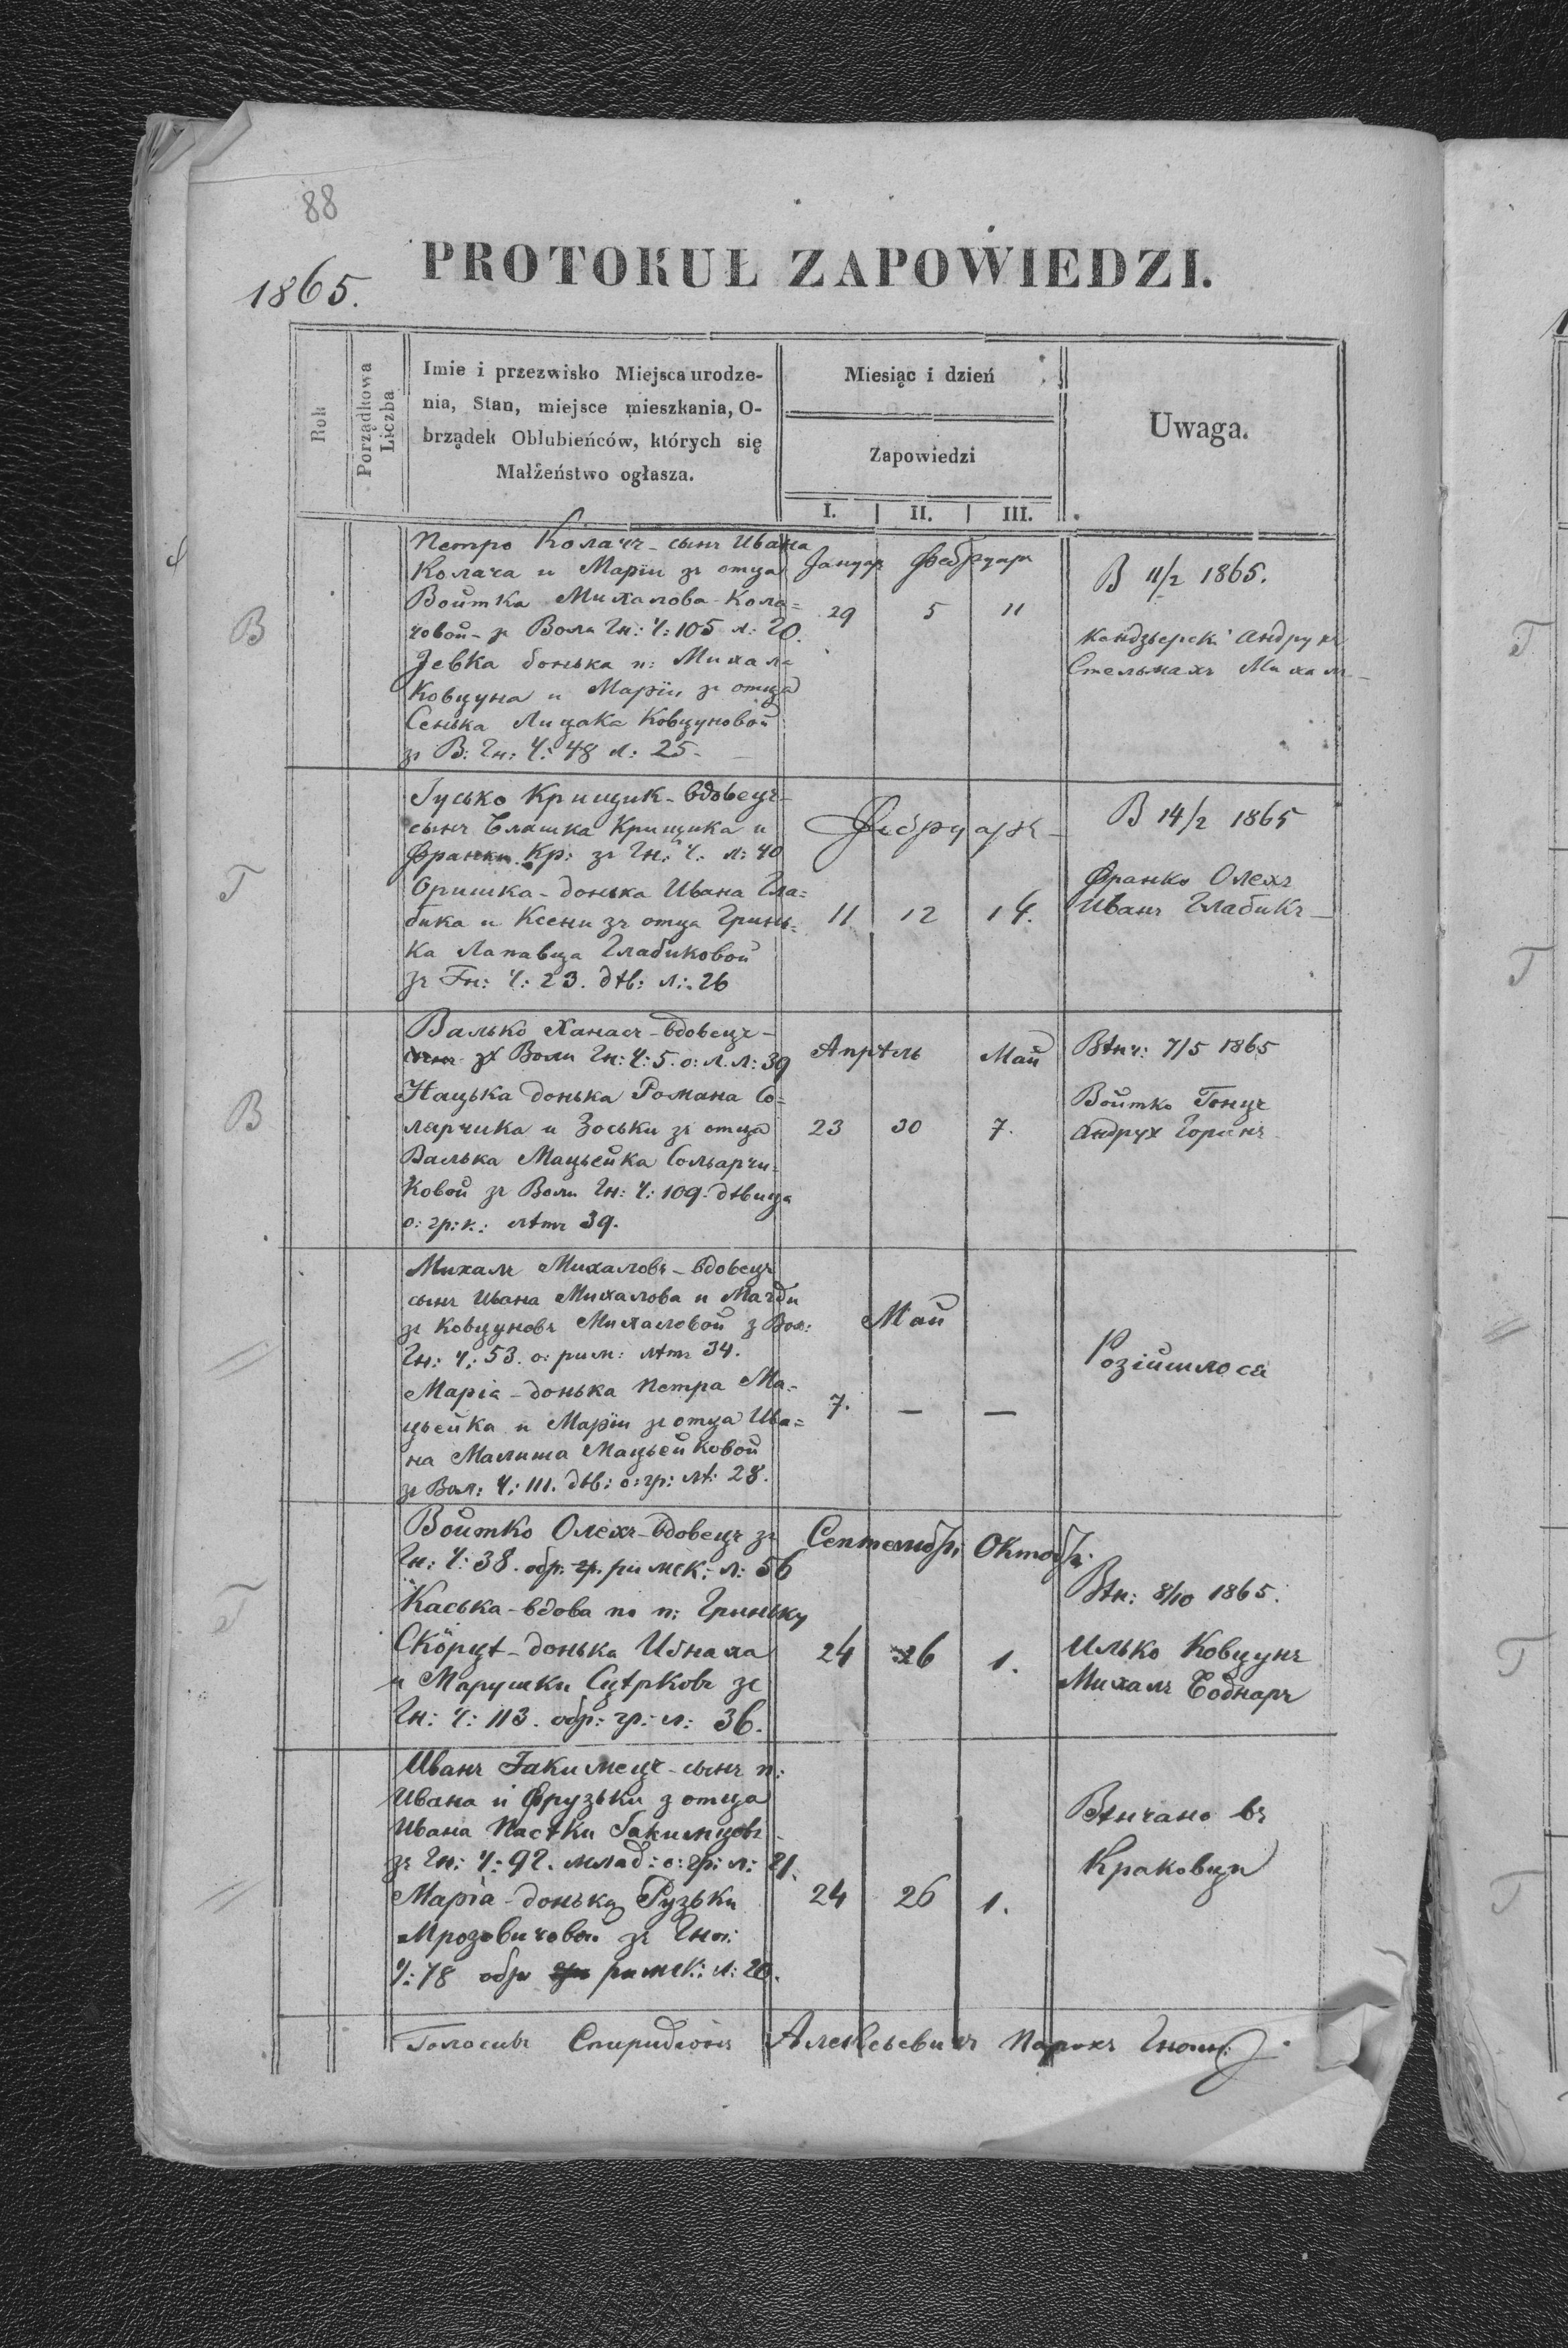 88
1865.
PROTOKUŁ ZAPOWIEDZI.
Rok
Porządkowa Liczba
Imie i przezwisko Miejsca urodze-
nia, Stan, miejsce mieszkania, O-
brządek Oblubieńców, których się
Małżeństwo ogłasza.
Miesiąc i dzień
Zapowiedzi
I. II. III.
Uwaga.
В
Петро Колачъ - сынъ Ивана
Колача и Маріи зъ отца
Войтка Михалова Кола=
човой - зъ Воли Гн: Ч: 105 л: 20.
Евка донька п: Михала
Ковцуна и Маріи зъ отца
Сенька Лицака Ковцуновой
зъ В: Гн: Ч: 48 л: 25 -
Януар Фебруар
29 5 11
В 11/2 1865.
Кендзьерскі Андрухъ
Стельмахъ Михалъ
Т
Гусько Крищик - вдовецъ -
сынъ Влашка Крищика и
Франки Кр: зъ Гн: Ч: л: 40
Оришка - донька Ивана Гла=
бика и Ксени зъ отца Гринь=
ка Лапавца Глабиковой
зъ Гн: Ч: 23. дѣв: л: 26
Фебруаръ -
11 12 14.
В 14/2 1865
Франко Олехъ
Иванъ Глабикъ -
В
Валько Ханасъ - вдовецъ -
зъ Воли Гн: Ч: 5. о: л. л: 39
Нацька донька Романа Со=
лярчика и Зоськи зъ отца
Валька Мацьейка Сольарчи=
ковой зъ Воли Гн: Ч: 109. дѣвица
о: гр: к: лѣтъ 39.
Апрѣль Май
23 30 7.
Вѣнч: 7/5 1865
Войтко Гонцъ
Андрух Горинъ
Михалъ Михаловъ - вдовецъ
сынъ Ивана Михалова и Магди
зъ Ковцуновъ Михаловой з Вол:
Гн: Ч: 53. о: рим: лѣтъ 34.
Маріа - донька Петра Ма-
цьейка и Маріи зъ отца Ива=
на Малиша Мацьейковой
зъ Вол: Ч: 111. дѣв: о: гр: лѣ: 28.
Май
7. — —
Розійшлося
Т
Войтко Олехъ - вдовецъ зъ
Гн: Ч: 38. обр. гр. римск: л: 56
Каська - вдова по п: Гриньку
донька Игнаха
и Марушки зъ
Гн: Ч: 113. обр: гр: л: 36.
Септембр: Октобр:
24 26 1.
Вѣн: 8/10 1865.
Илько Ковцунъ
Михалъ Боднаръ
Иванъ Гакимецъ - сынъ п:
Ивана и Фрузьки з отца
Ивана Гакимцовъ -
зъ Гн: Ч: 92. млад: о: гр: л: 21.
Маріа - донька Рузьки
Мрозовичовой зъ Гно:
Ч: 78 обр гр римск: л: 20.
24 26 1.
Вѣнчано въ
Краковци
Голосивъ Спиридіонъ Алексьевичъ Парохъ Гнойн: